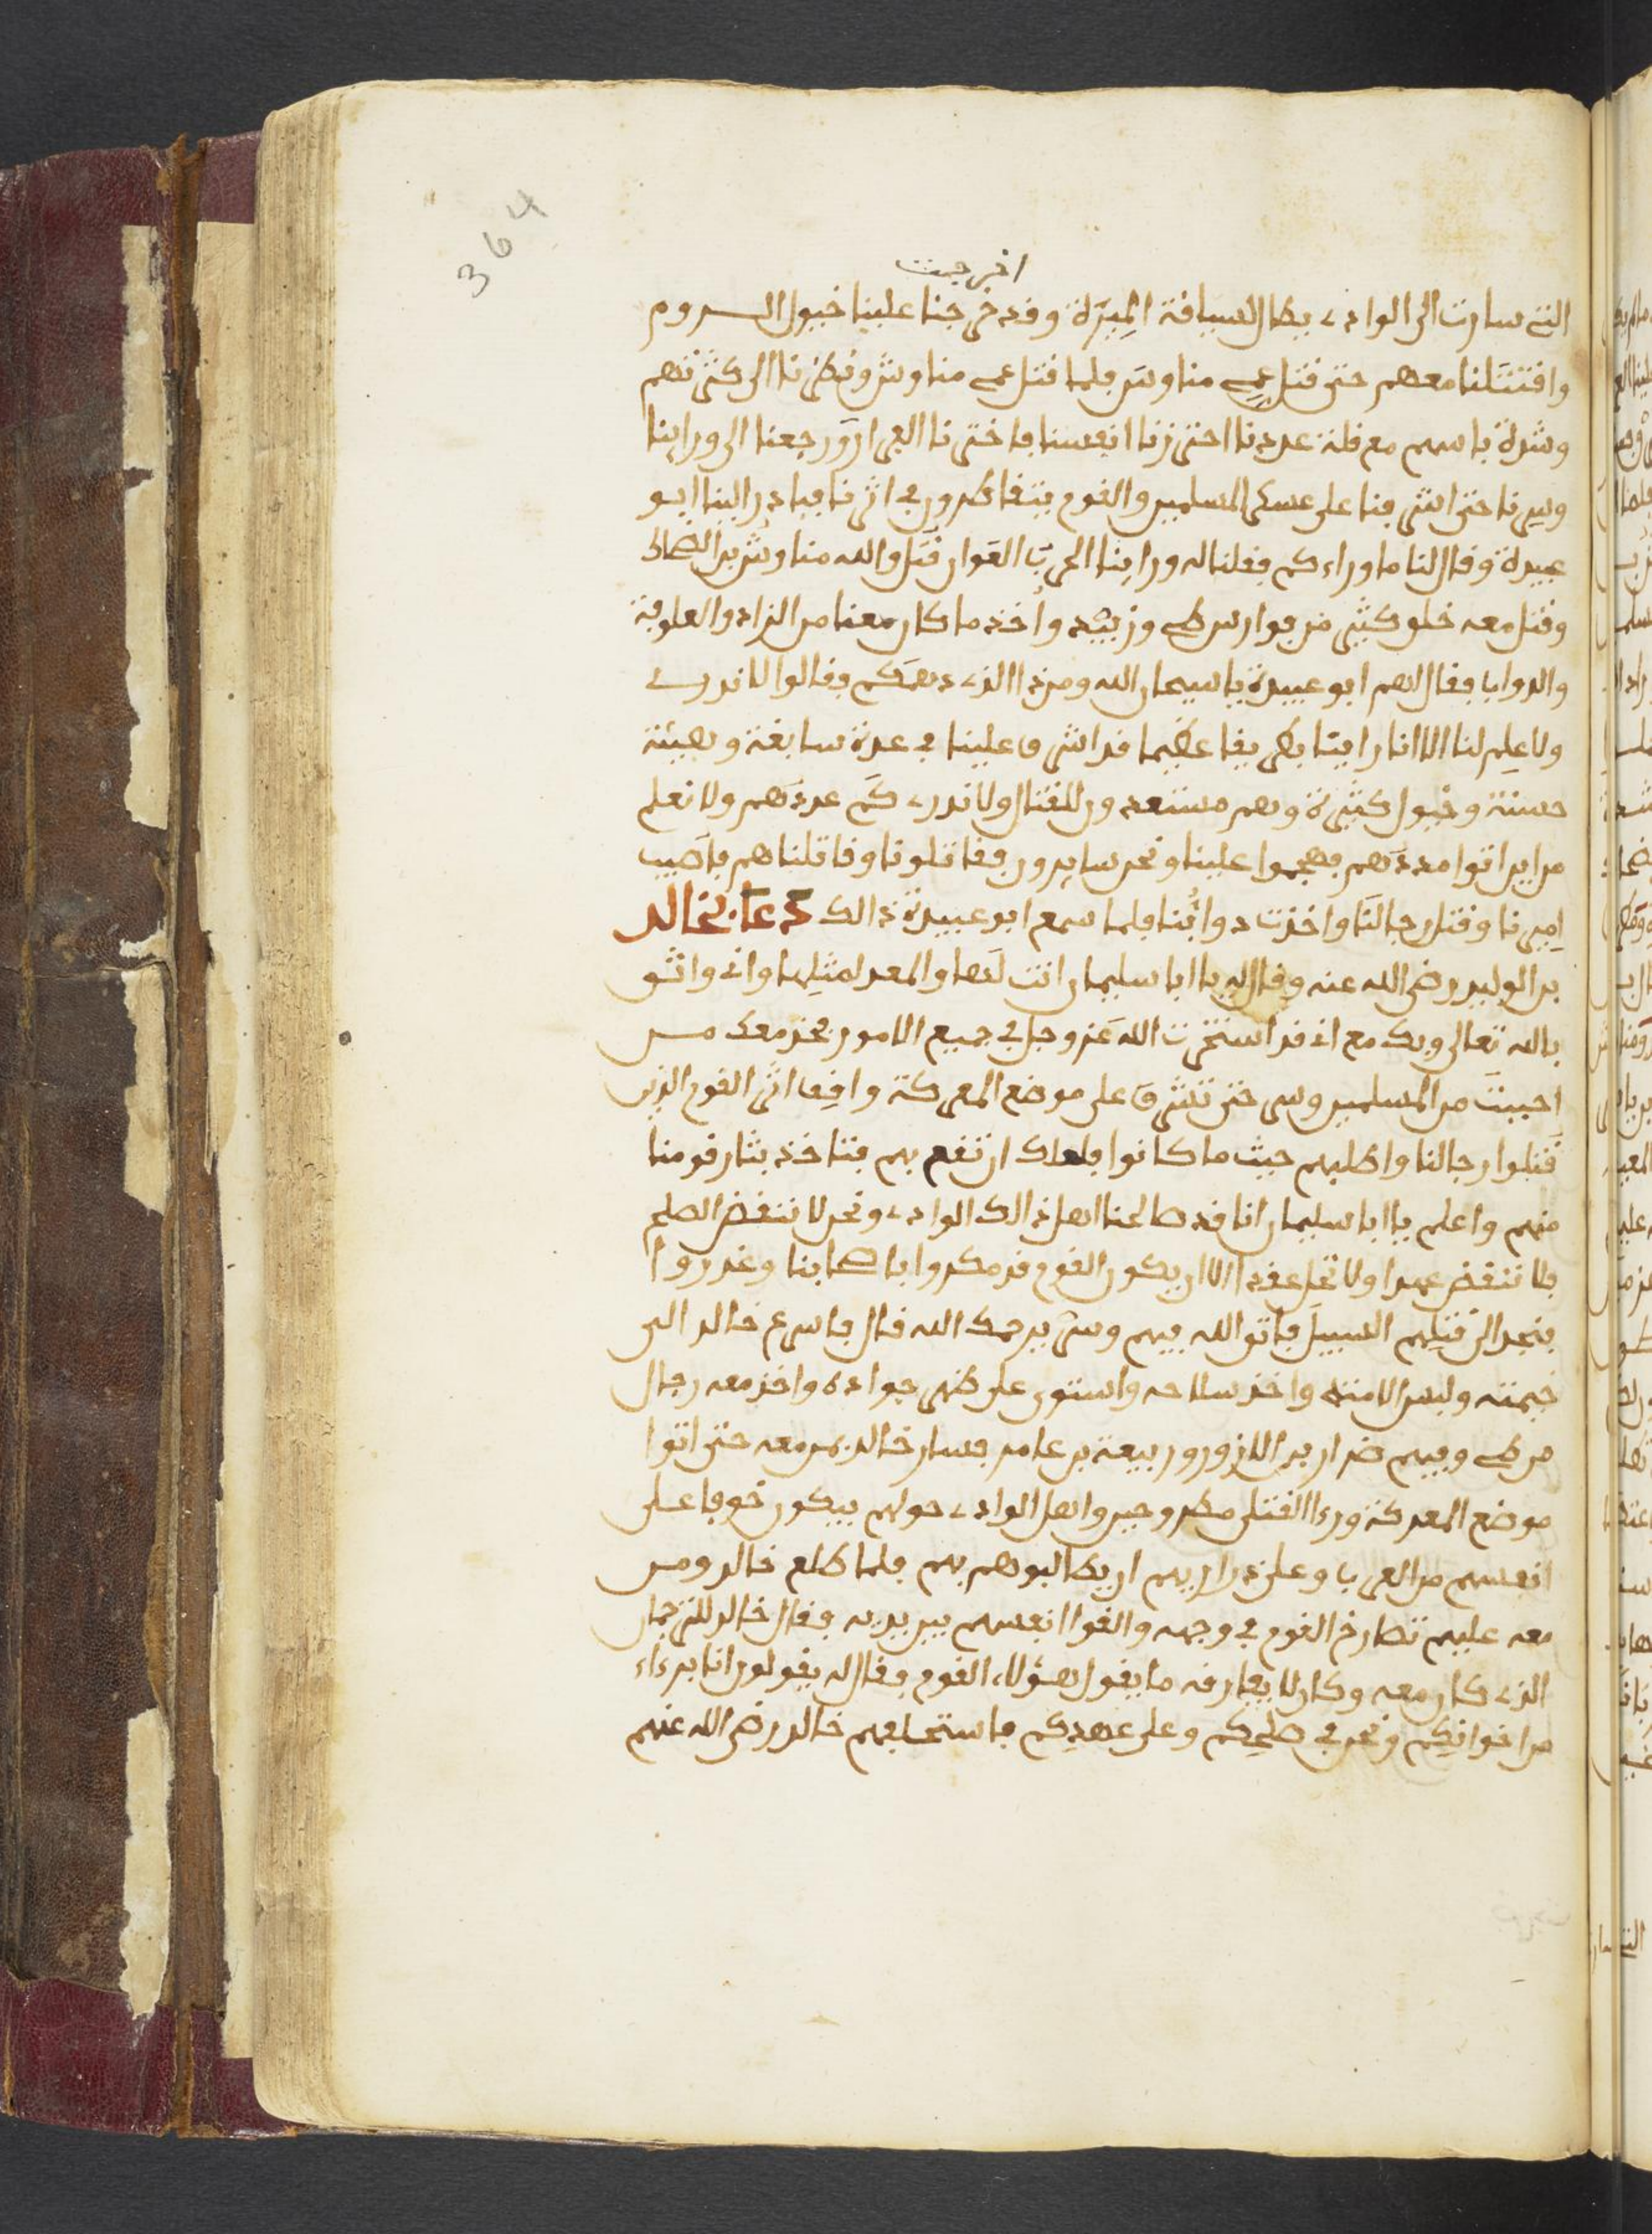 364
اخرجت
التي سارت الى الوادي بطال لسياقة الميرة وقد خرجنا علينا خيول الروم
واقتتلنا معهم حتى قتل عمي مناوش فلما قتل عمي مناوش ونظرنا الى كثرتهم
وشدة باسهم مع قلة عددنا احترزنا انفسنا فاخترنا الفرار ورجعنا الى وراينا
وسرنا حتى اشرفنا على عسكر المسلمين والقوم يتقاطرون في اثرنا فبادر الينا ابو
عبيدة وقال لنا ما وراءكم فقلنا له وراينا الحرب العوان قتل والله مناوش بن الضحاك
وقتل معه خلق كثير من فوارس طي وزبيد واخذ ما كان معنا من الزاد والعلوفة
والدواب فقال لهم ابو عبيدة يا سبحان الله ومن ذا الذي دهمكم فقالوا لا ندري
ولا علم لنا الا انا راينا بطريقا عظيما قد اشرف علينا في عدة سابغة وهيئة
حسنة وخيول كثيرة وهم مستعدون للقتال ولا ندري كم عددهم ولا نعلم
من اين اتوا مددهم فهجموا علينا ونحن سايرون فقاتلونا وقاتلناهم فاصيب
اميرنا وقتل رجالنا واخذت دوابنا فلما سمع ابو عبيدة ذالك دعا بخالد
بن الوليد رضي الله عنه وقال له يا ابا سليمان انت لها والمعد لمثلها واني واثق
بالله تعالى وبك مع اني قد استخرت الله عز وجل في جميع الامور فخذ معك من
احببت من المسلمين وسر حتى تشرف على موضع المعركة واقف اثر القوم الذين
قتلوا رجالنا واطلبهم حيث ما كانوا فلعلك ان تقع بهم فتاخذ بثار قومنا
منهم واعلم يا ابا سليمان انا قد صالحنا اهل ذالك الوادي ونحن لا ننقض الصلح
فلا تنقض عهدا ولا تحل عقدا الا ان يكون القوم قد مكروا باصحابنا وغدروا
فنجد الى قتلهم السبيل فاتق الله فيهم وسر يرحمك الله قال فاسرع خالد الى
خيمته ولبس لامته واخذ سلاحه واستوى على ظهر جواده واخذ معه رجال
من طي وفيهم ضرار بن الازور وربيعة بن عامر فسار خالد بمن معه حتى اتوا
موضع المعركة وراء القتلى مطروحين واهل الوادي حولهم يبكون خوفا على
انفسهم من العرب وعلى ذراريهم ان يطالبوهم بهم فلما طلع خالد ومن
معه عليهم تصارخ القوم في وجهه والقوا انفسهم بين يديه فقال خالد للترجمان
الذي كان معه وكان لا يفارقه ما يقول هؤلاء القوم فقال له يقولون انا برءاء
من اخوانكم ونحن في صلحكم وعلى عهدكم فاستحلفهم خالد رضي الله عنهم